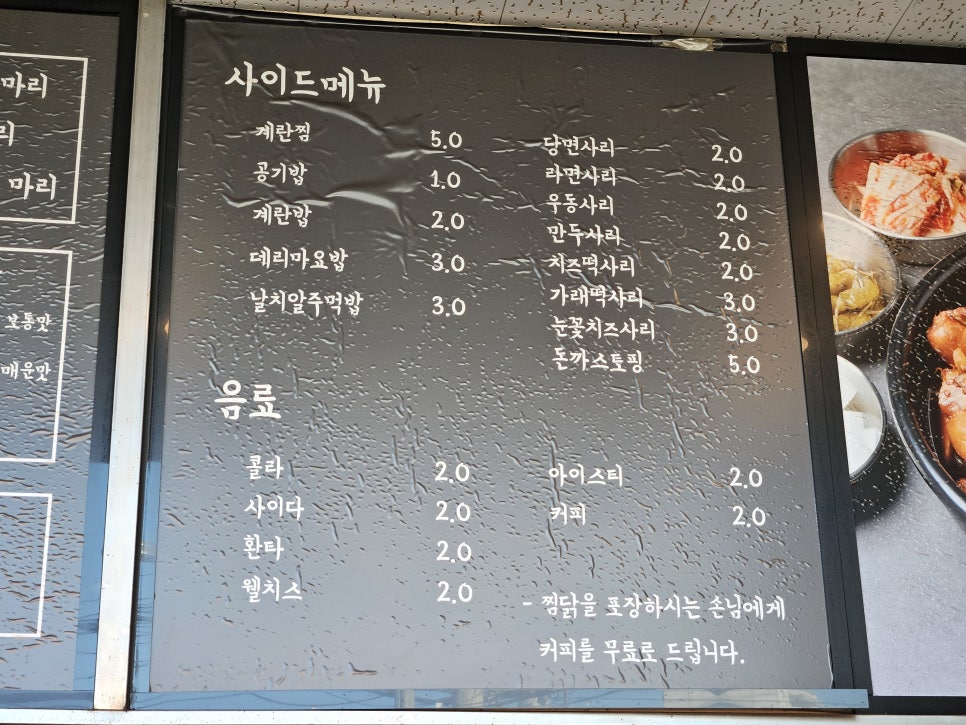 마리
리
마리
보통맛
매운맛
사이드메뉴
계란찜 5.0
공기밥 1.0
계란밥 2.0
데리마요밥 3.0
날치알주먹밥 3.0
당면사리 2.0
라면사리 2.0
우동사리 2.0
만두사리 2.0
치즈떡사리 2.0
가래떡사리 3.0
눈꽃치즈사리 3.0
돈까스토핑 5.0
음료
콜라 2.0
사이다 2.0
환타 2.0
웰치스 2.0
아이스티 2.0
커피 2.0
- 찜닭을 포장하시는 손님에게
커피를 무료로 드립니다.